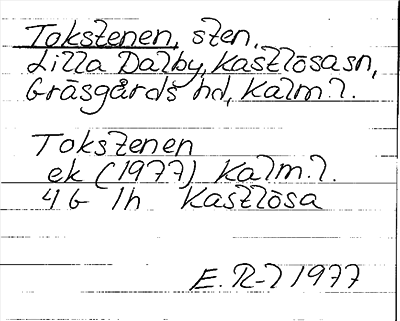 Tokstenen, sten,
Lilla Dalby, Kastlösa sn,
Gräsgårds hd, Kalm.l.
Tokstenen
ek (1977) Kalm.l.
4G 1h Kastlösa
E.R-l 1977